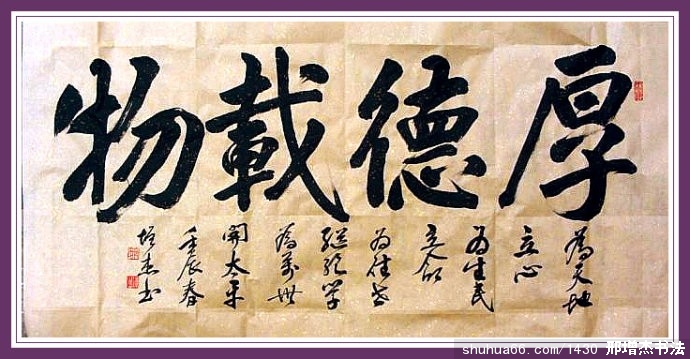 厚德載物
為天地
立心
为生民
立命
为往圣
继绝学
為萬世
開太平
壬辰春
增杰书
shuhua66.com/1430 邢增杰书法